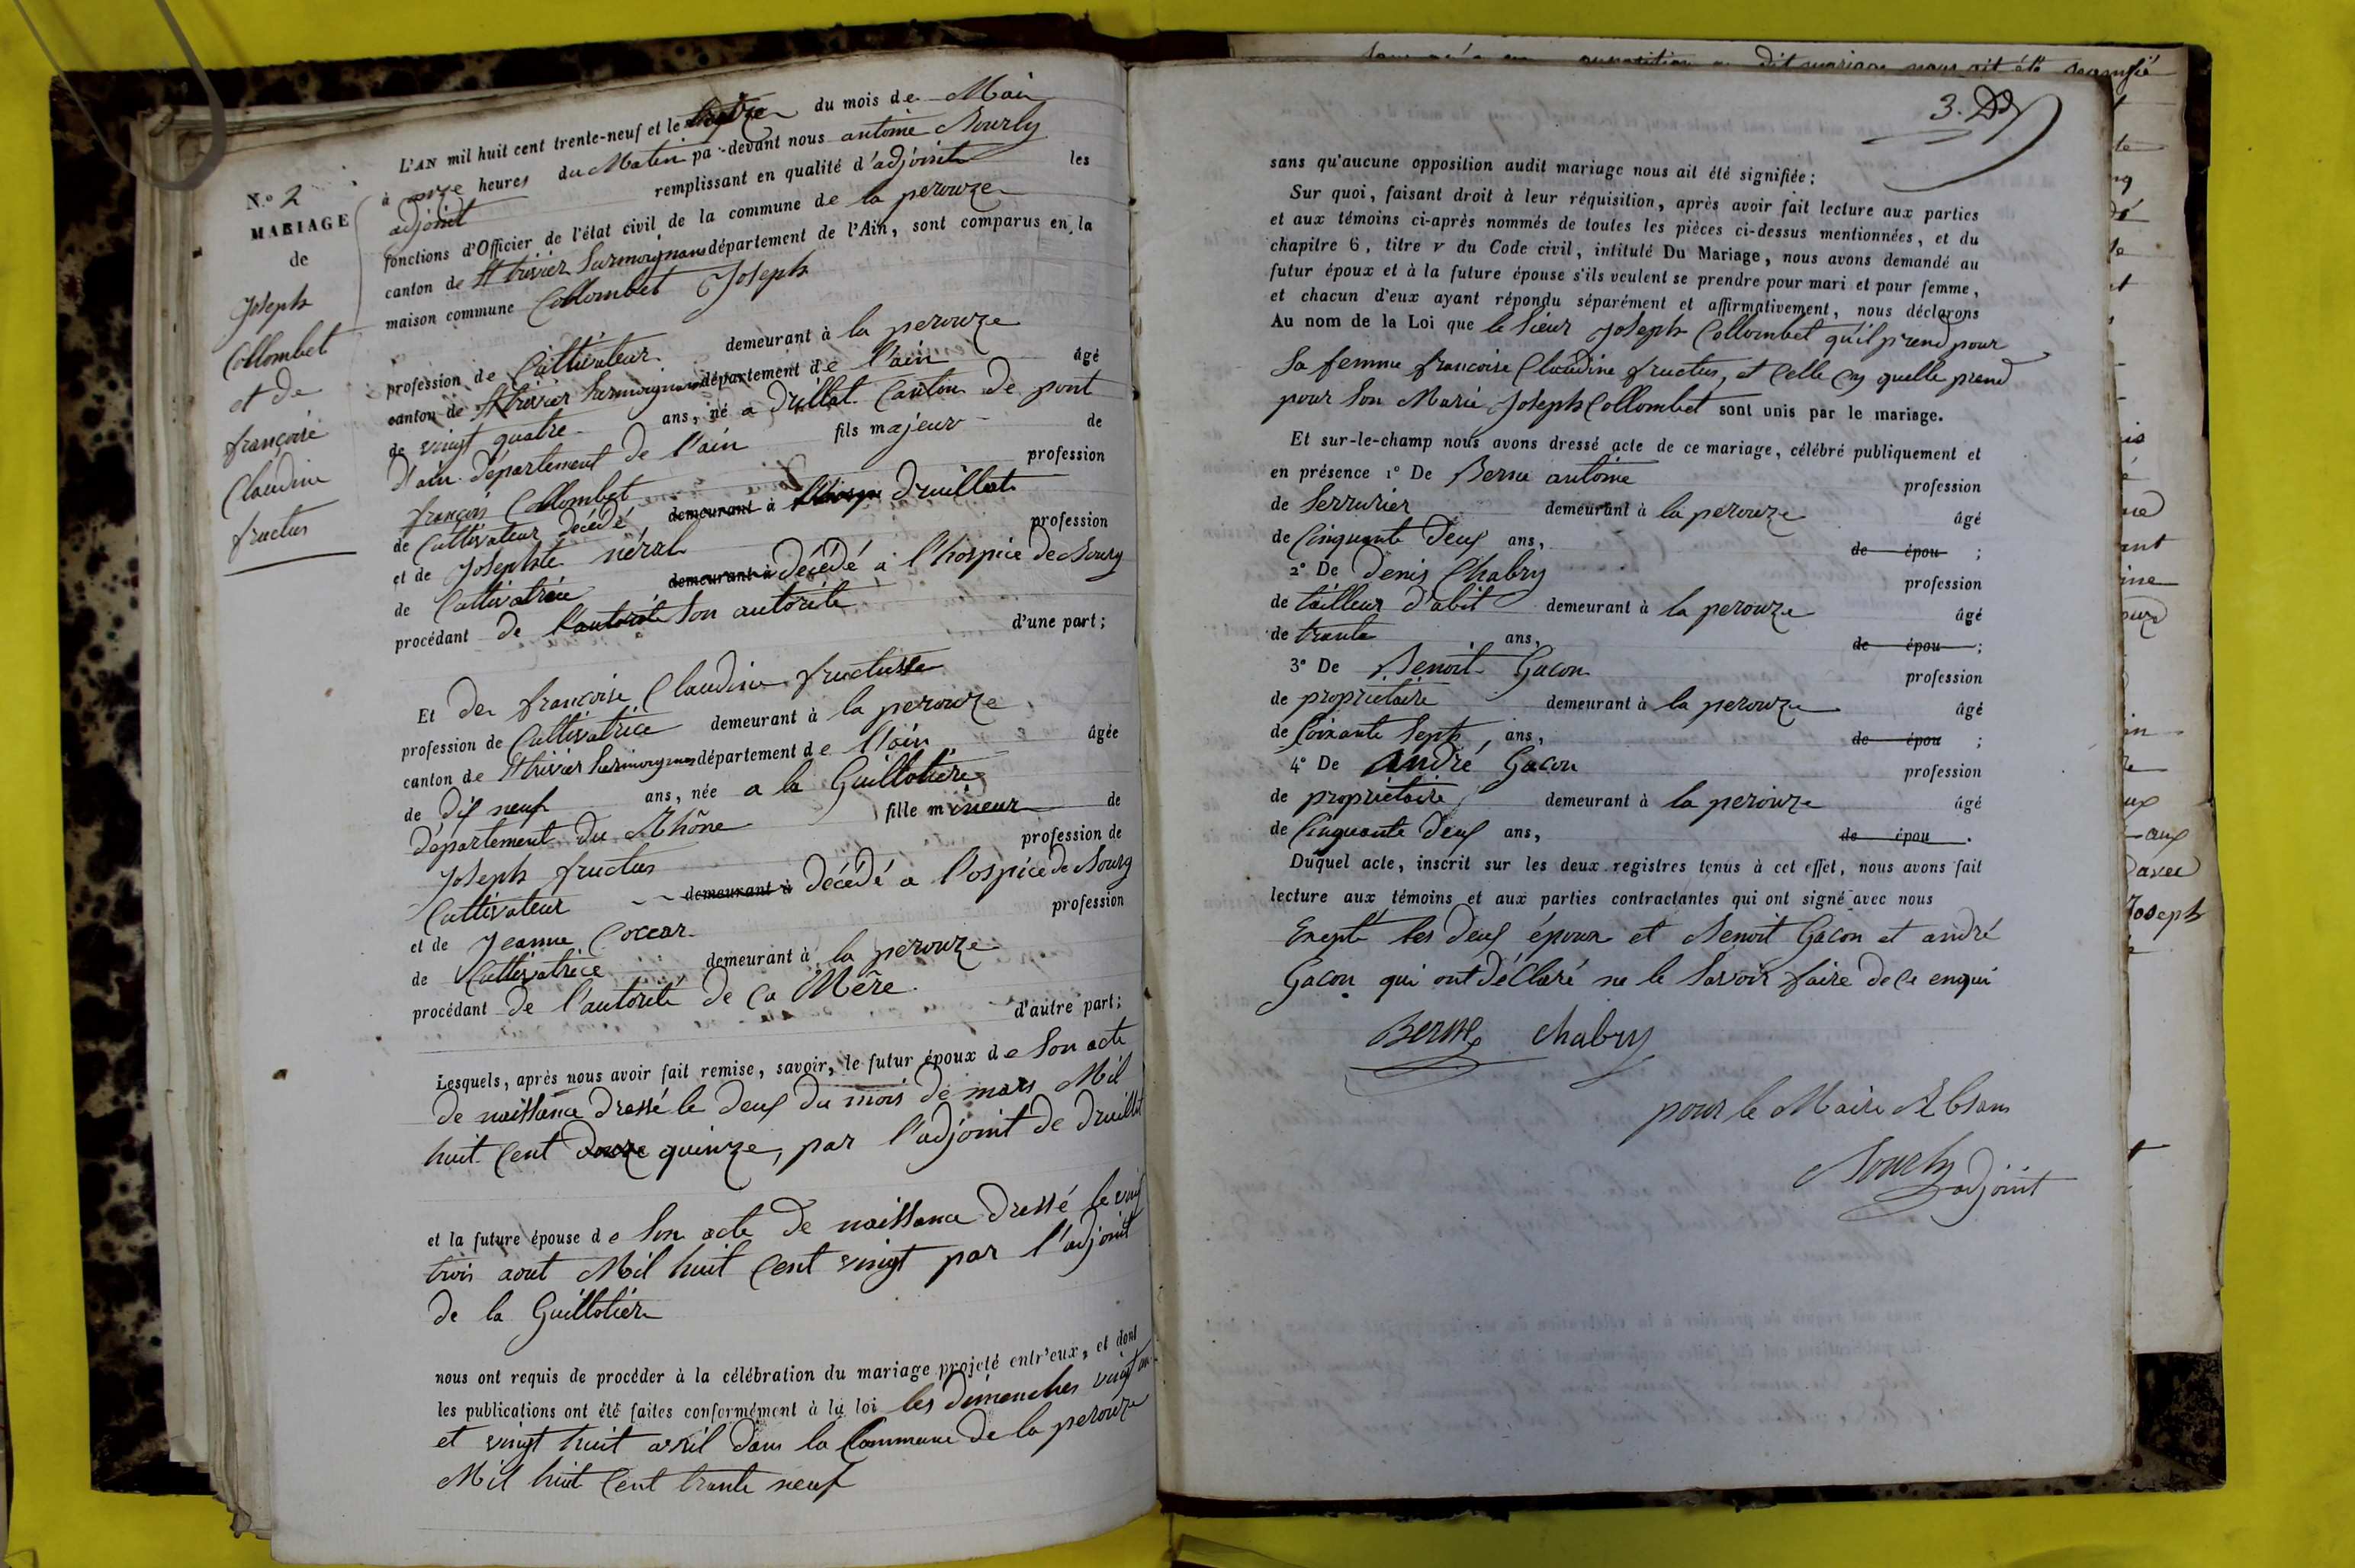 N.o 2
MARIAGE
de
Joseph
Collombet
et de
françoise
Claudine
fructus
L'AN mil huit cent trente-neuf et le du mois de Mai
à onze heures du Matin pa-devant nous antoine Bourly
adjoint remplissant en qualité d'adjoint les
fonctions d'Officier de l'état civil de la commune de la perouze
canton de St trivier Surmoignans département de l'Ain, sont comparus en la
maison commune Collombet Joseph
profession de Cultivateur demeurant à la perouze
canton de St trivier Surmoignans département de l'ain âgé
de vingt quatre ans, né a Drillat Canton de pont
d'ain département de l'ain fils majeur de
françois Collombet profession
de Cultivateur décédé, demeurant à l'hospi druillat
et de Josephte néral profession
de Cultivatrice demeurant à décédé à l'hospice de Bourg
procédant de l'autorité Son autorité
d'une part;
Et de françoise Claudine fructus
profession de Cultivatrice demeurant à la perouze
canton de St trivier Surmoignans département de l'ain âgée
de dix neuf ans, née a la Guillotière
département du Rhône fille mineur de
Joseph fructus profession de
Cultivateur demeurant à décédé a l'ospice de Bourg
et de Jeanne Coccar profession
de Cultivatrice demeurant à la perouze
procédant de l'autorité de Ca Mère
d'autre part;
Lesquels, après nous avoir fait remise, savoir, le futur époux de Son acte
de naissance dressé le deux du mois de mars Mil
huit Cent douze quinze, par l'adjoint de druillat
et la future épouse de Son acte de naissance dressé le vingt
trois aout Mil huit Cent vingt par l'adjoint
de la Guillotière
nous ont requis de procéder à la célébration du mariage projeté entr'eux, et dont
les publications ont été faites conformément à la loi les dimenches vingt un
et vingt huit avril dans la Commune de la perouze
Mil huit Cent trante neuf
3.
sans qu'aucune opposition audit mariage nous ait été signifiée;
Sur quoi, faisant droit à leur réquisition, après avoir fait lecture aux parties
et aux témoins ci-après nommés de toutes les pièces ci-dessus mentionnées, et du
chapitre 6, titre v du Code civil, intitulé Du Mariage, nous avons demandé au
futur époux et à la future épouse s'ils veulent se prendre pour mari et pour femme,
et chacun d'eux ayant répondu séparément et affirmativement, nous déclarons
Au nom de la Loi que le Sieur Joseph Collombet qu'il prend pour
Sa femme francoise Claudine fructus, et Celle Cy quelle prend
pour Son Marie Joseph Collombet sont unis par le mariage.
Et sur-le-champ nous avons dressé acte de ce mariage, célébré publiquement et
en présence 1° De Berne antoine profession
de Serrurier demeurant à la perouze âgé
de Cinquante deux ans, de épou ;
2° De Denis Chabry profession
de tailleur d'abit demeurant à la perouze âgé
de trante ans, de épou ;
3° De Benoit Gacon profession
de propriétaire demeurant à la perouze âgé
de Coixante Septs ans, de épou ;
4° De André Gacon profession
de propriétaire demeurant à la perouze âgé
de Cinquante deux ans, de épou .
Duquel acte, inscrit sur les deux registres tenus à cet effet, nous avons fait
lecture aux témoins et aux parties contractantes qui ont signé avec nous
Exepté les deux époux et Benoit Gacon et andré
Gacon qui ont déClaré ne le Savoir faire de Ce enqui
Berne Chabry
pour le Maire Absans
Bourly
adjoint